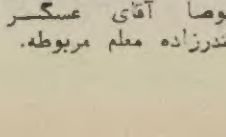 وصا آقای عسگـــر
ندرزاده معلم مربوطه.